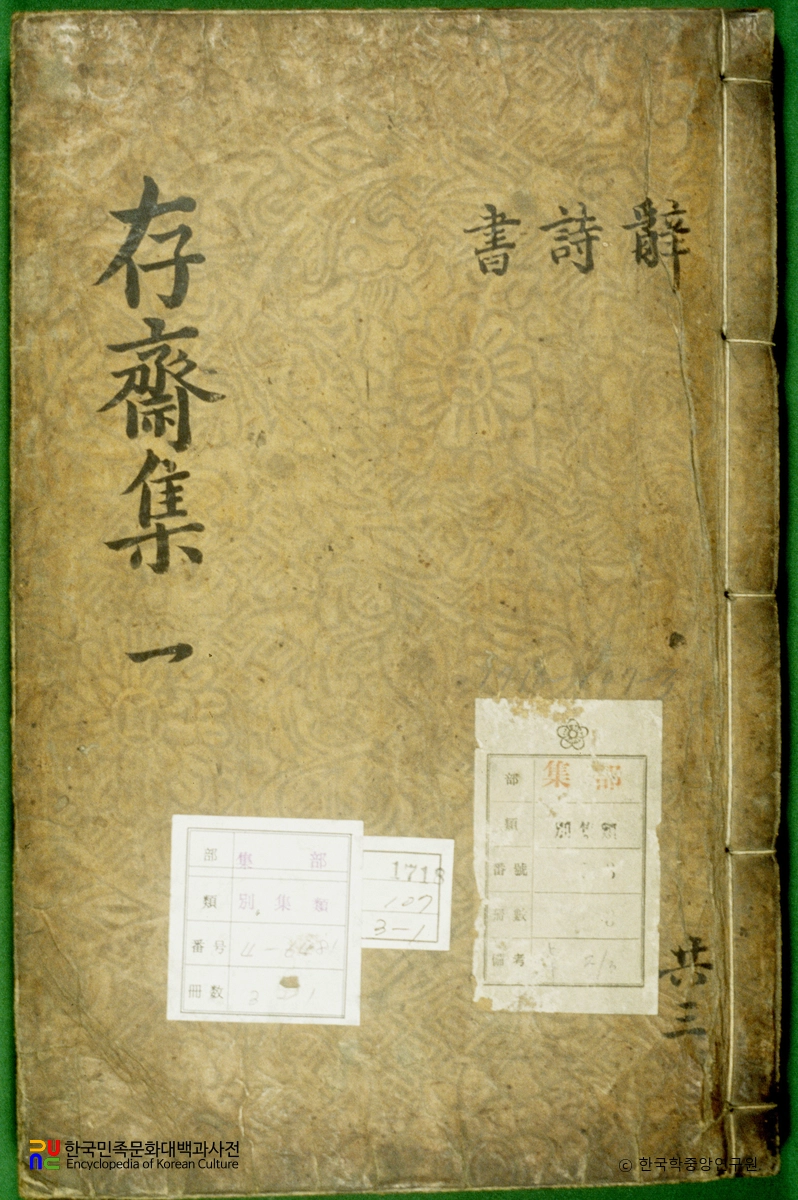 存齋集 一
辭 詩 書
共三
部 集部
類 別集類
番号
冊数
1718
107
3-1
部 集部
類 別集類
番號
冊數
備考
한국민족문화대백과사전
Encyclopedia of Korean Culture
© 한국학중앙연구원